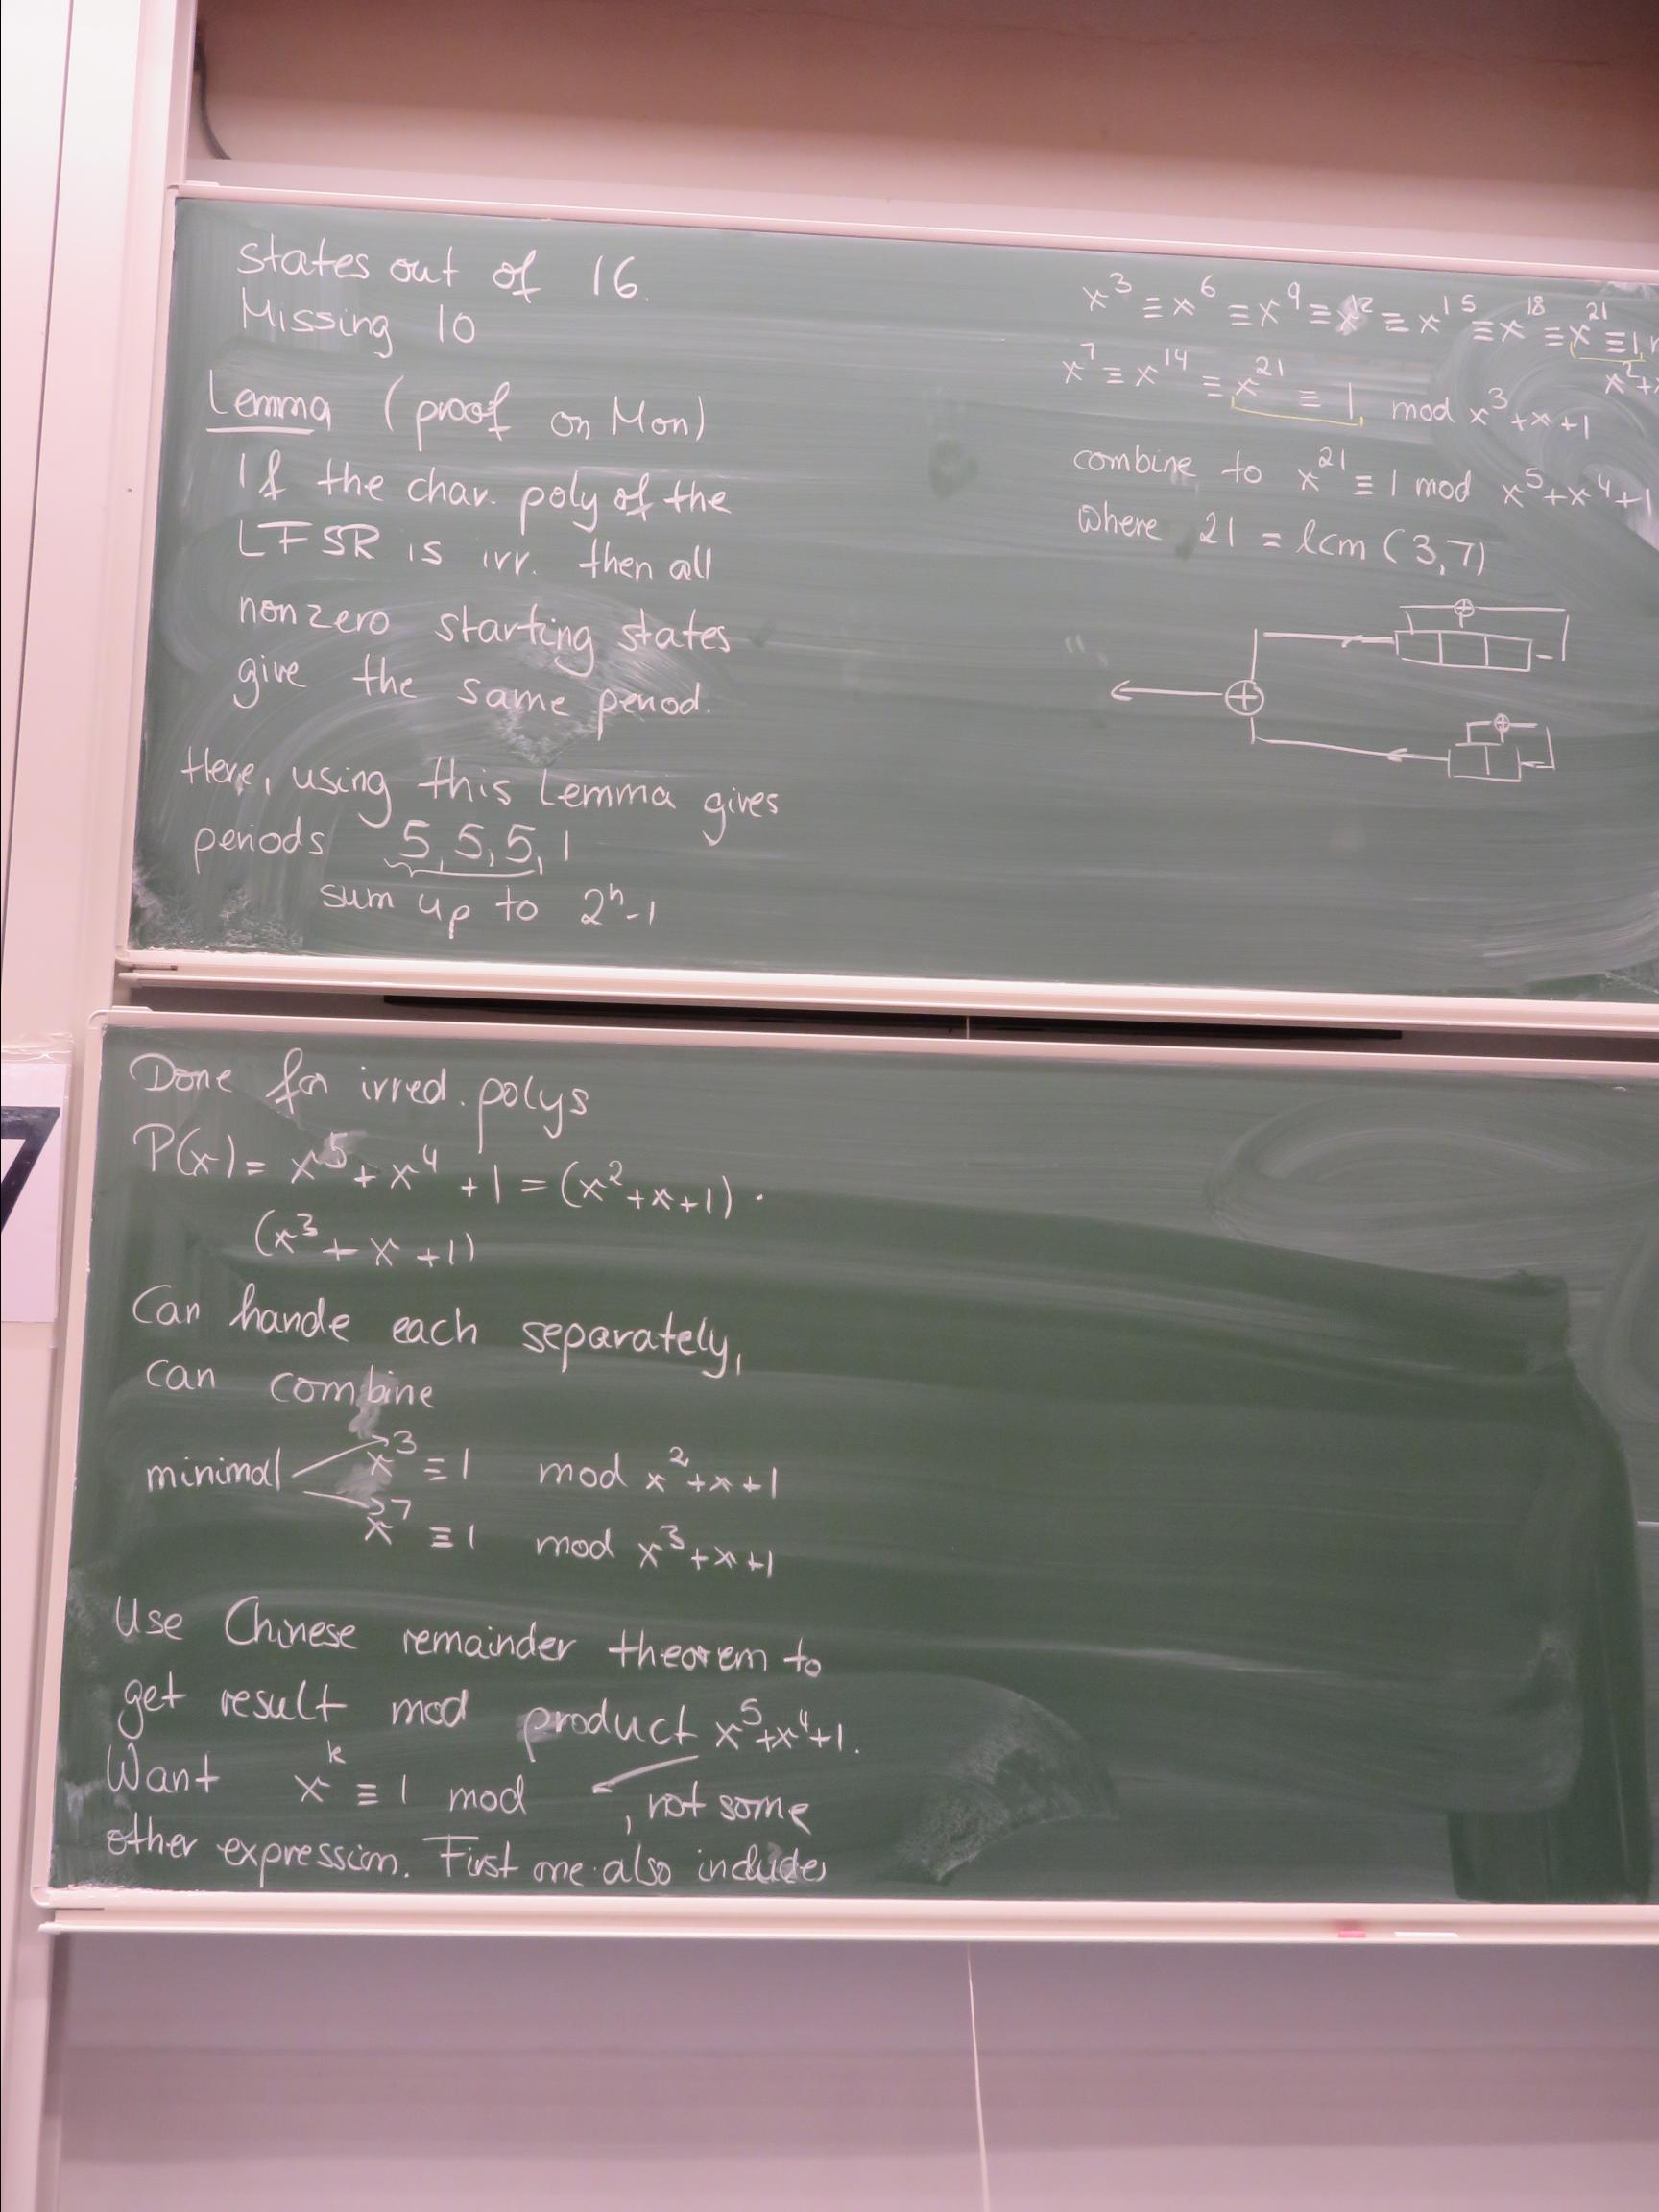 States out of 16.
Missing 10
Lemma (proof on Mon)
If the char. poly of the
LFSR is irr. then all
nonzero starting states
give the same period.
Here, using this Lemma gives
periods 5, 5, 5, 1
sum up to 2ⁿ-1
x³ ≡ x⁶ ≡ x⁹ ≡ x¹² ≡ x¹⁵ ≡ x¹⁸ ≡ x²¹ ≡ 1
x²+
x⁷ ≡ x¹⁴ ≡ x²¹ ≡ 1 mod x³+x+1
combine to x²¹ ≡ 1 mod x⁵+x⁴+1
where 21 = lcm (3,7)
Done for irred. polys
P(x) = x⁵ + x⁴ + 1 = (x²+x+1) ·
(x³ + x + 1)
Can hande each separately,
can combine
minimal x³ ≡ 1 mod x²+x+1
x⁷ ≡ 1 mod x³+x+1
Use Chinese remainder theorem to
get result mod product x⁵+x⁴+1.
Want xᵏ ≡ 1 mod , not some
other expression. First one also includes